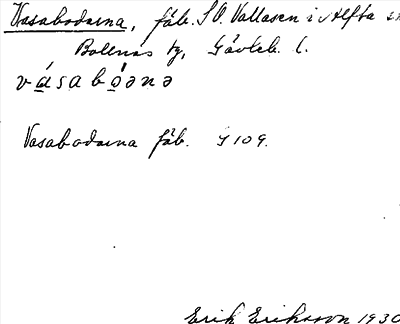 Vasabodarna, fäb. SV. Vallasen i v Alfta
Bollnäs tg, Gävleb. l.
vásabǫ́ənə
Vasabodarna fäb. J 109.
Erik Eriksson 1930